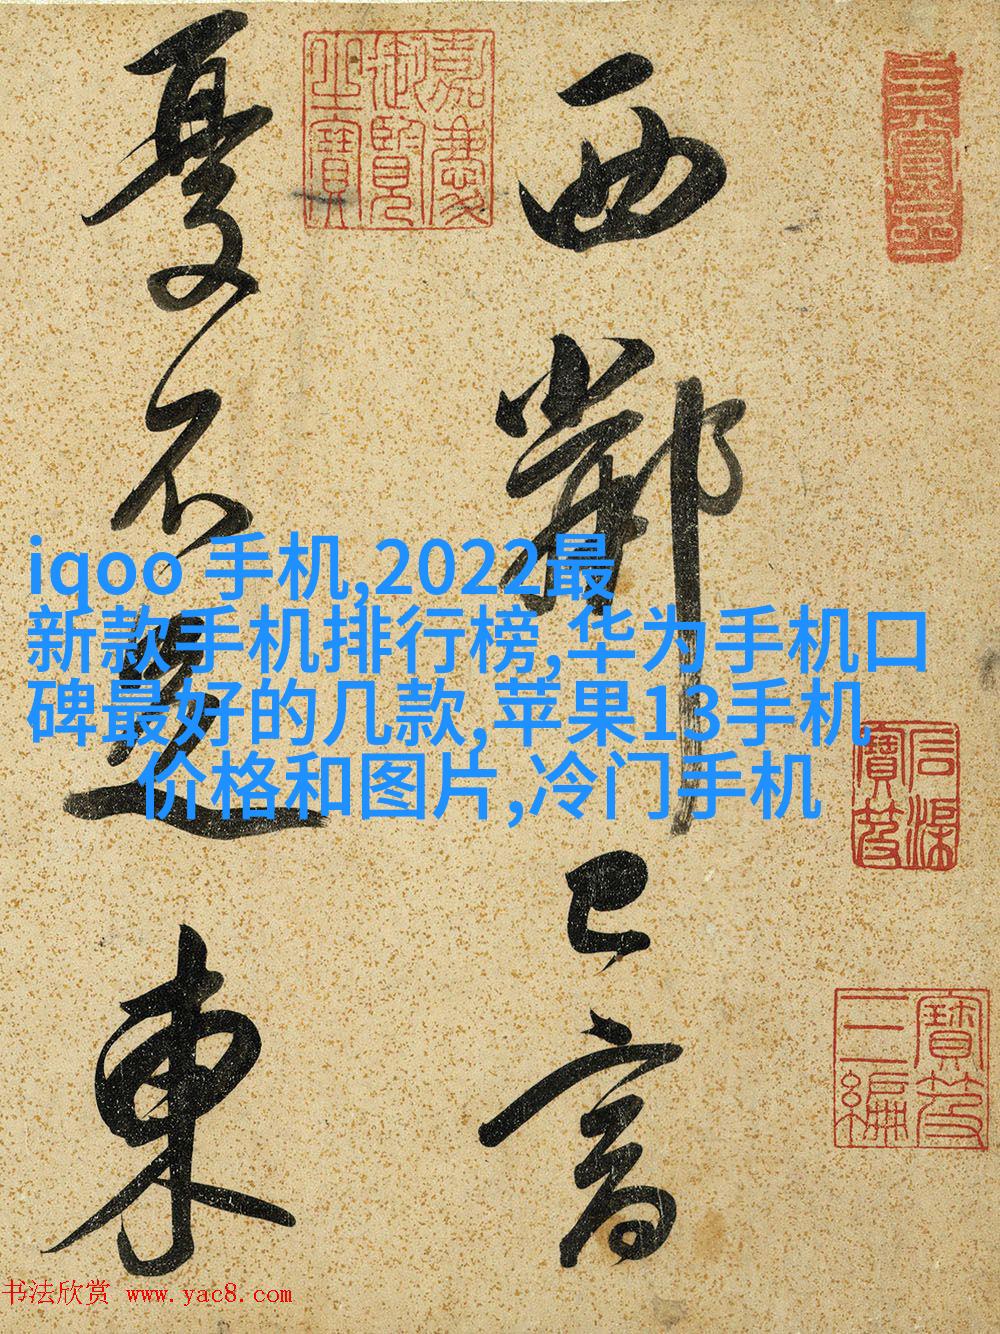 西鄰已富
憂不足東
嘉慶
御覽
之寶
石渠
寶笈
寶笈
三編
iqoo 手机,2022最
新款手机排行榜,华为手机口
碑最好的几款,苹果13手机
价格和图片,冷门手机
书法欣赏 www.yac8.com